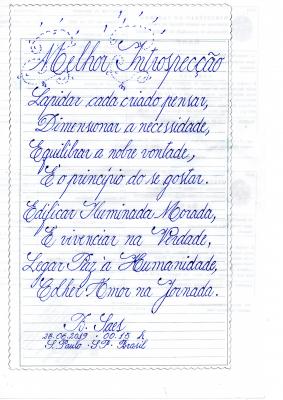 Melhor Introspecção
Lapidar cada criado pensar,
Dimensionar a necessidade,
Equilibrar a nobre vontade,
É o princípio do se gostar.
Edificar Iluminada Morada,
E vivenciar na Verdade,
Legar Paz à Humanidade,
Colher Amor na Jornada.
B. Saes
26.06.2019 - 00:15 h
S. Paulo - S.P. Brasil